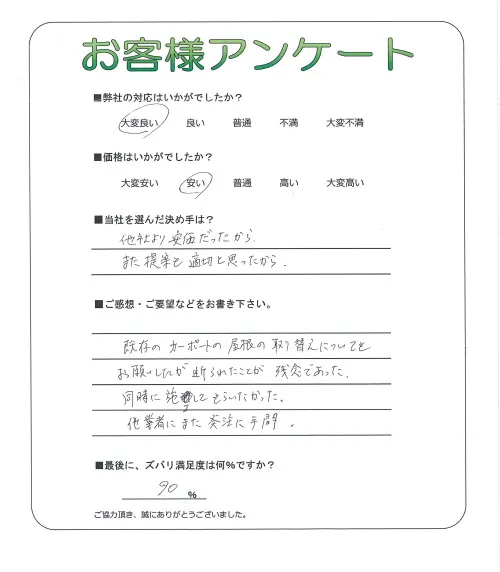 お客様アンケート
■弊社の対応はいかがでしたか?
大変良い 良い 普通 不満 大変不満
■価格はいかがでしたか?
大変安い 安い 普通 高い 大変高い
■当社を選んだ決め手は?
他社より安価だったから.
また提案も適切と思ったから.
■ご感想・ご要望などをお書き下さい。
既存のカーポートの屋根の取り替えについても
お願いしたが断られたことが残念であった.
同時に施工してもらいたかった。
他業者にまた発注に手間.
■最後に、ズバリ満足度は何%ですか?
90 %
ご協力頂き、誠にありがとうございました。